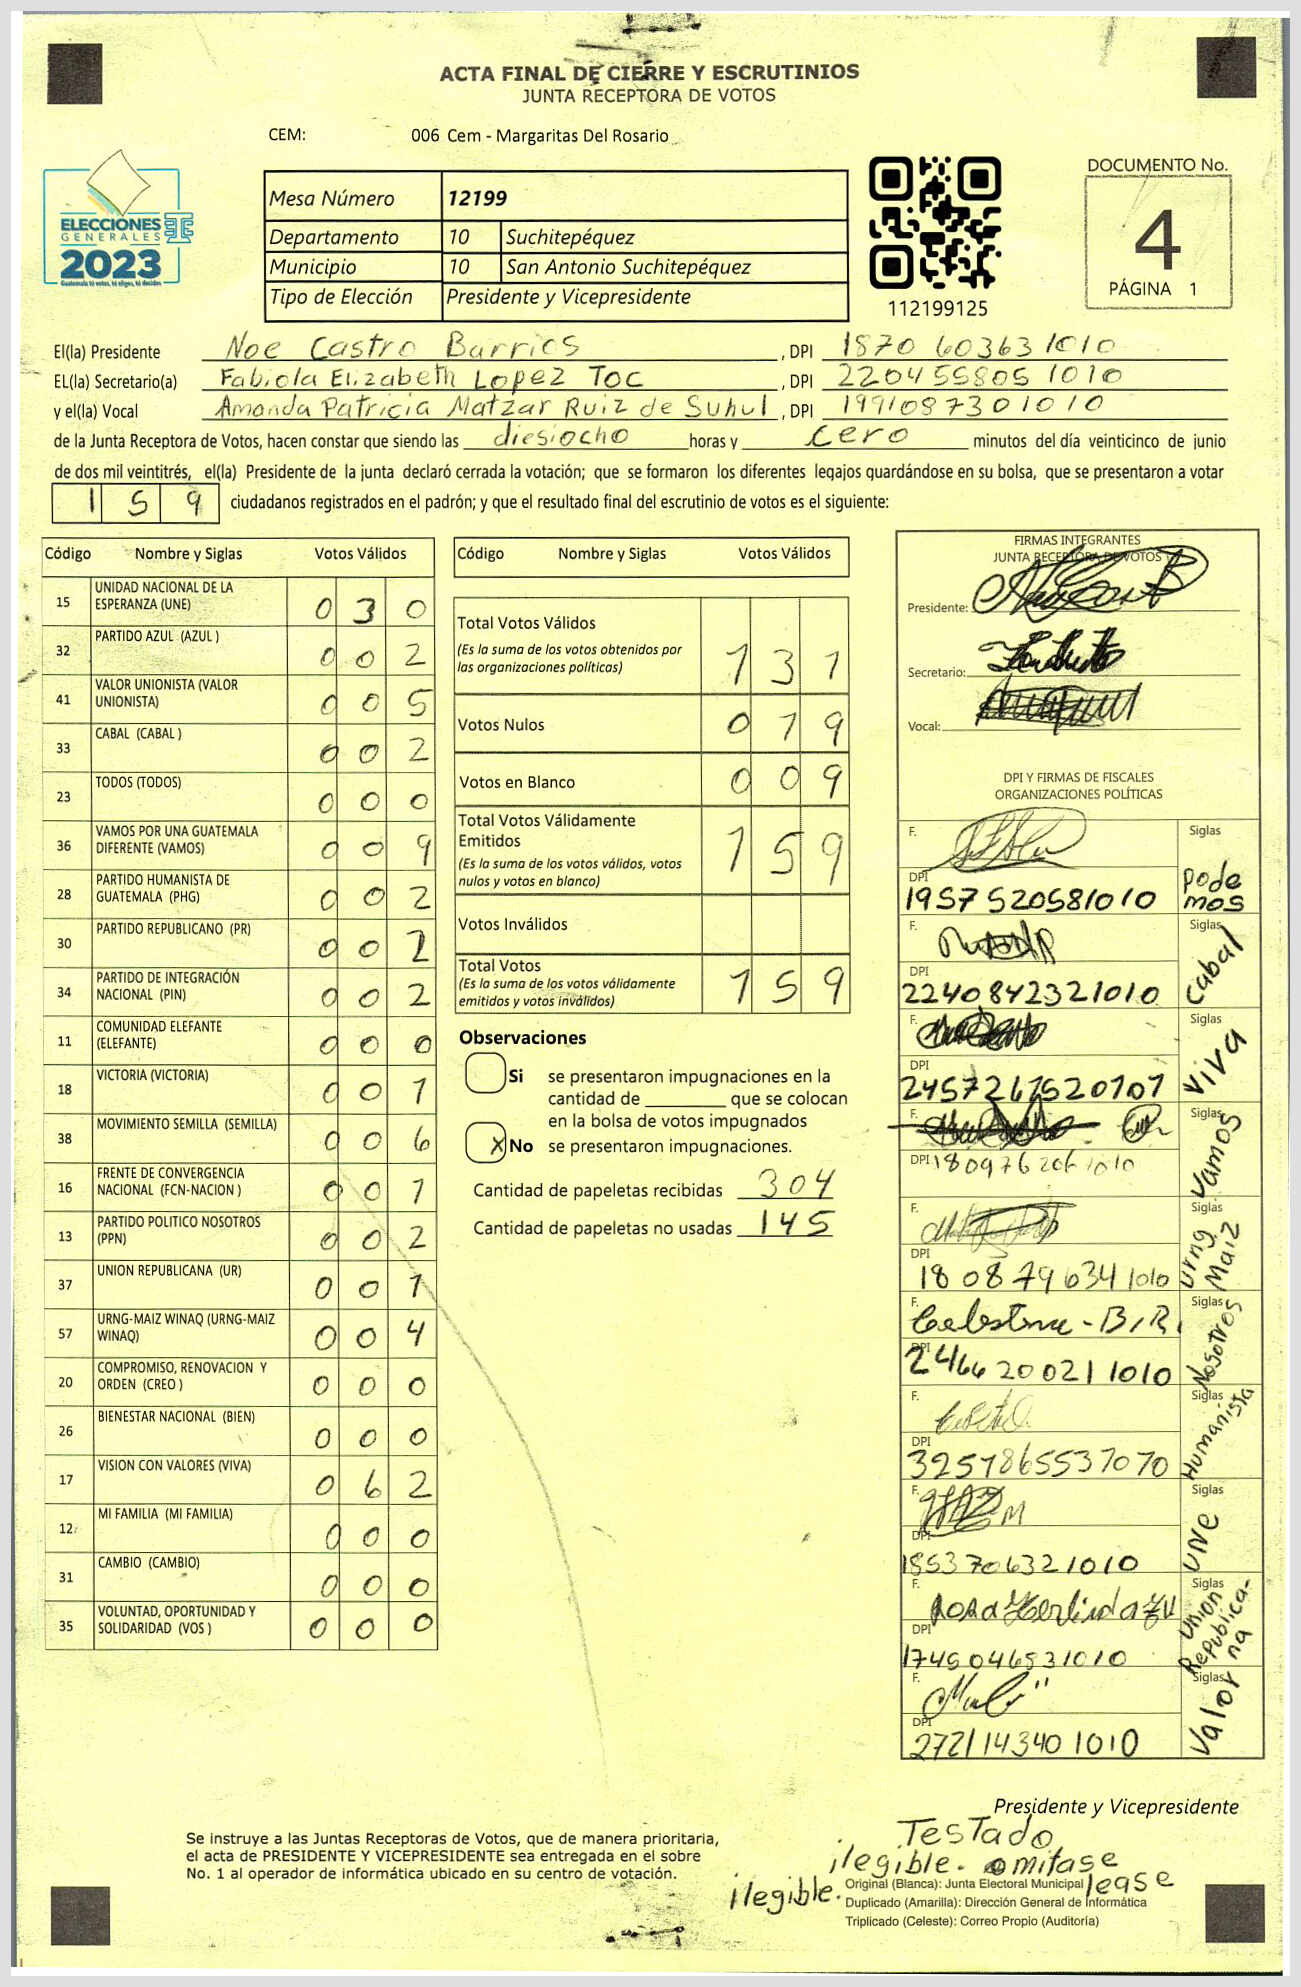 ACTA FINAL DE CIERRE Y ESCRUTINIOS
JUNTA RECEPTORA DE VOTOS
CEM: 006 Cem - Margaritas Del Rosario
ELECCIONES
GENERALES
2023
Guatemala tú votas, tú eliges, tú decides
Mesa Número 12199
Departamento 10 Suchitepéquez
Municipio 10 San Antonio Suchitepéquez
Tipo de Elección Presidente y Vicepresidente
112199125
DOCUMENTO No.
4
PÁGINA 1
El(la) Presidente Noe Castro Barrios , DPI 1870 60363 1010
EL(la) Secretario(a) Fabiola Elizabeth Lopez Toc , DPI 220455805 1010
y el(la) Vocal Amanda Patricia Matzar Ruiz de Suhul , DPI 1991087301010
de la Junta Receptora de Votos, hacen constar que siendo las diesiocho horas y cero minutos del día veinticinco de junio
de dos mil veintitrés, el(la) Presidente de la junta declaró cerrada la votación; que se formaron los diferentes legajos guardándose en su bolsa, que se presentaron a votar
159 ciudadanos registrados en el padrón; y que el resultado final del escrutinio de votos es el siguiente:
Código Nombre y Siglas Votos Válidos
15 UNIDAD NACIONAL DE LA ESPERANZA (UNE) 0 3 0
32 PARTIDO AZUL (AZUL ) 0 0 2
41 VALOR UNIONISTA (VALOR UNIONISTA) 0 0 5
33 CABAL (CABAL ) 0 0 2
23 TODOS (TODOS) 0 0 0
36 VAMOS POR UNA GUATEMALA DIFERENTE (VAMOS) 0 0 9
28 PARTIDO HUMANISTA DE GUATEMALA (PHG) 0 0 2
30 PARTIDO REPUBLICANO (PR) 0 0 2
34 PARTIDO DE INTEGRACIÓN NACIONAL (PIN) 0 0 2
11 COMUNIDAD ELEFANTE (ELEFANTE) 0 0 0
18 VICTORIA (VICTORIA) 0 0 1
38 MOVIMIENTO SEMILLA (SEMILLA) 0 0 6
16 FRENTE DE CONVERGENCIA NACIONAL (FCN-NACION ) 0 0 1
13 PARTIDO POLITICO NOSOTROS (PPN) 0 0 2
37 UNION REPUBLICANA (UR) 0 0 1
57 URNG-MAIZ WINAQ (URNG-MAIZ WINAQ) 0 0 4
20 COMPROMISO, RENOVACION Y ORDEN (CREO ) 0 0 0
26 BIENESTAR NACIONAL (BIEN) 0 0 0
17 VISION CON VALORES (VIVA) 0 6 2
12 MI FAMILIA (MI FAMILIA) 0 0 0
31 CAMBIO (CAMBIO) 0 0 0
35 VOLUNTAD, OPORTUNIDAD Y SOLIDARIDAD (VOS ) 0 0 0
Código Nombre y Siglas Votos Válidos
Total Votos Válidos 1 3 1
(Es la suma de los votos obtenidos por
las organizaciones políticas)
Votos Nulos 0 1 9
Votos en Blanco 0 0 9
Total Votos Válidamente
Emitidos 1 5 9
(Es la suma de los votos válidos, votos
nulos y votos en blanco)
Votos Inválidos
Total Votos 1 5 9
(Es la suma de los votos válidamente
emitidos y votos inválidos)
Observaciones
Si se presentaron impugnaciones en la
cantidad de ________ que se colocan
en la bolsa de votos impugnados
X No se presentaron impugnaciones.
Cantidad de papeletas recibidas 304
Cantidad de papeletas no usadas 145
FIRMAS INTEGRANTES
JUNTA RECEPTORA DE VOTOS
Presidente:
Secretario:
Vocal:
DPI Y FIRMAS DE FISCALES
ORGANIZACIONES POLÍTICAS
F. Siglas
DPI 1957520581010 Podemos
F. Siglas
DPI 2240842321010 Cabal
F. Siglas
DPI 2457267520101 Viva
F. Siglas
DPI 1809762061010 Vamos
F. Siglas
DPI 1808796341010 Urng Maiz
F. Siglas
DPI 2466200211010 Nosotros
F. Siglas
DPI 3257865537070 Humanista
F. Siglas
DPI 1853706321010 UNE
F. Siglas
DPI 1745046531010 Union Republicana
F. Siglas
DPI 2721143401010 Valor
Presidente y Vicepresidente
Testado
ilegible. omitase
lease
ilegible.
Se instruye a las Juntas Receptoras de Votos, que de manera prioritaria,
el acta de PRESIDENTE Y VICEPRESIDENTE sea entregada en el sobre
No. 1 al operador de informática ubicado en su centro de votación.
Original (Blanca): Junta Electoral Municipal
Duplicado (Amarilla): Dirección General de Informática
Triplicado (Celeste): Correo Propio (Auditoría)